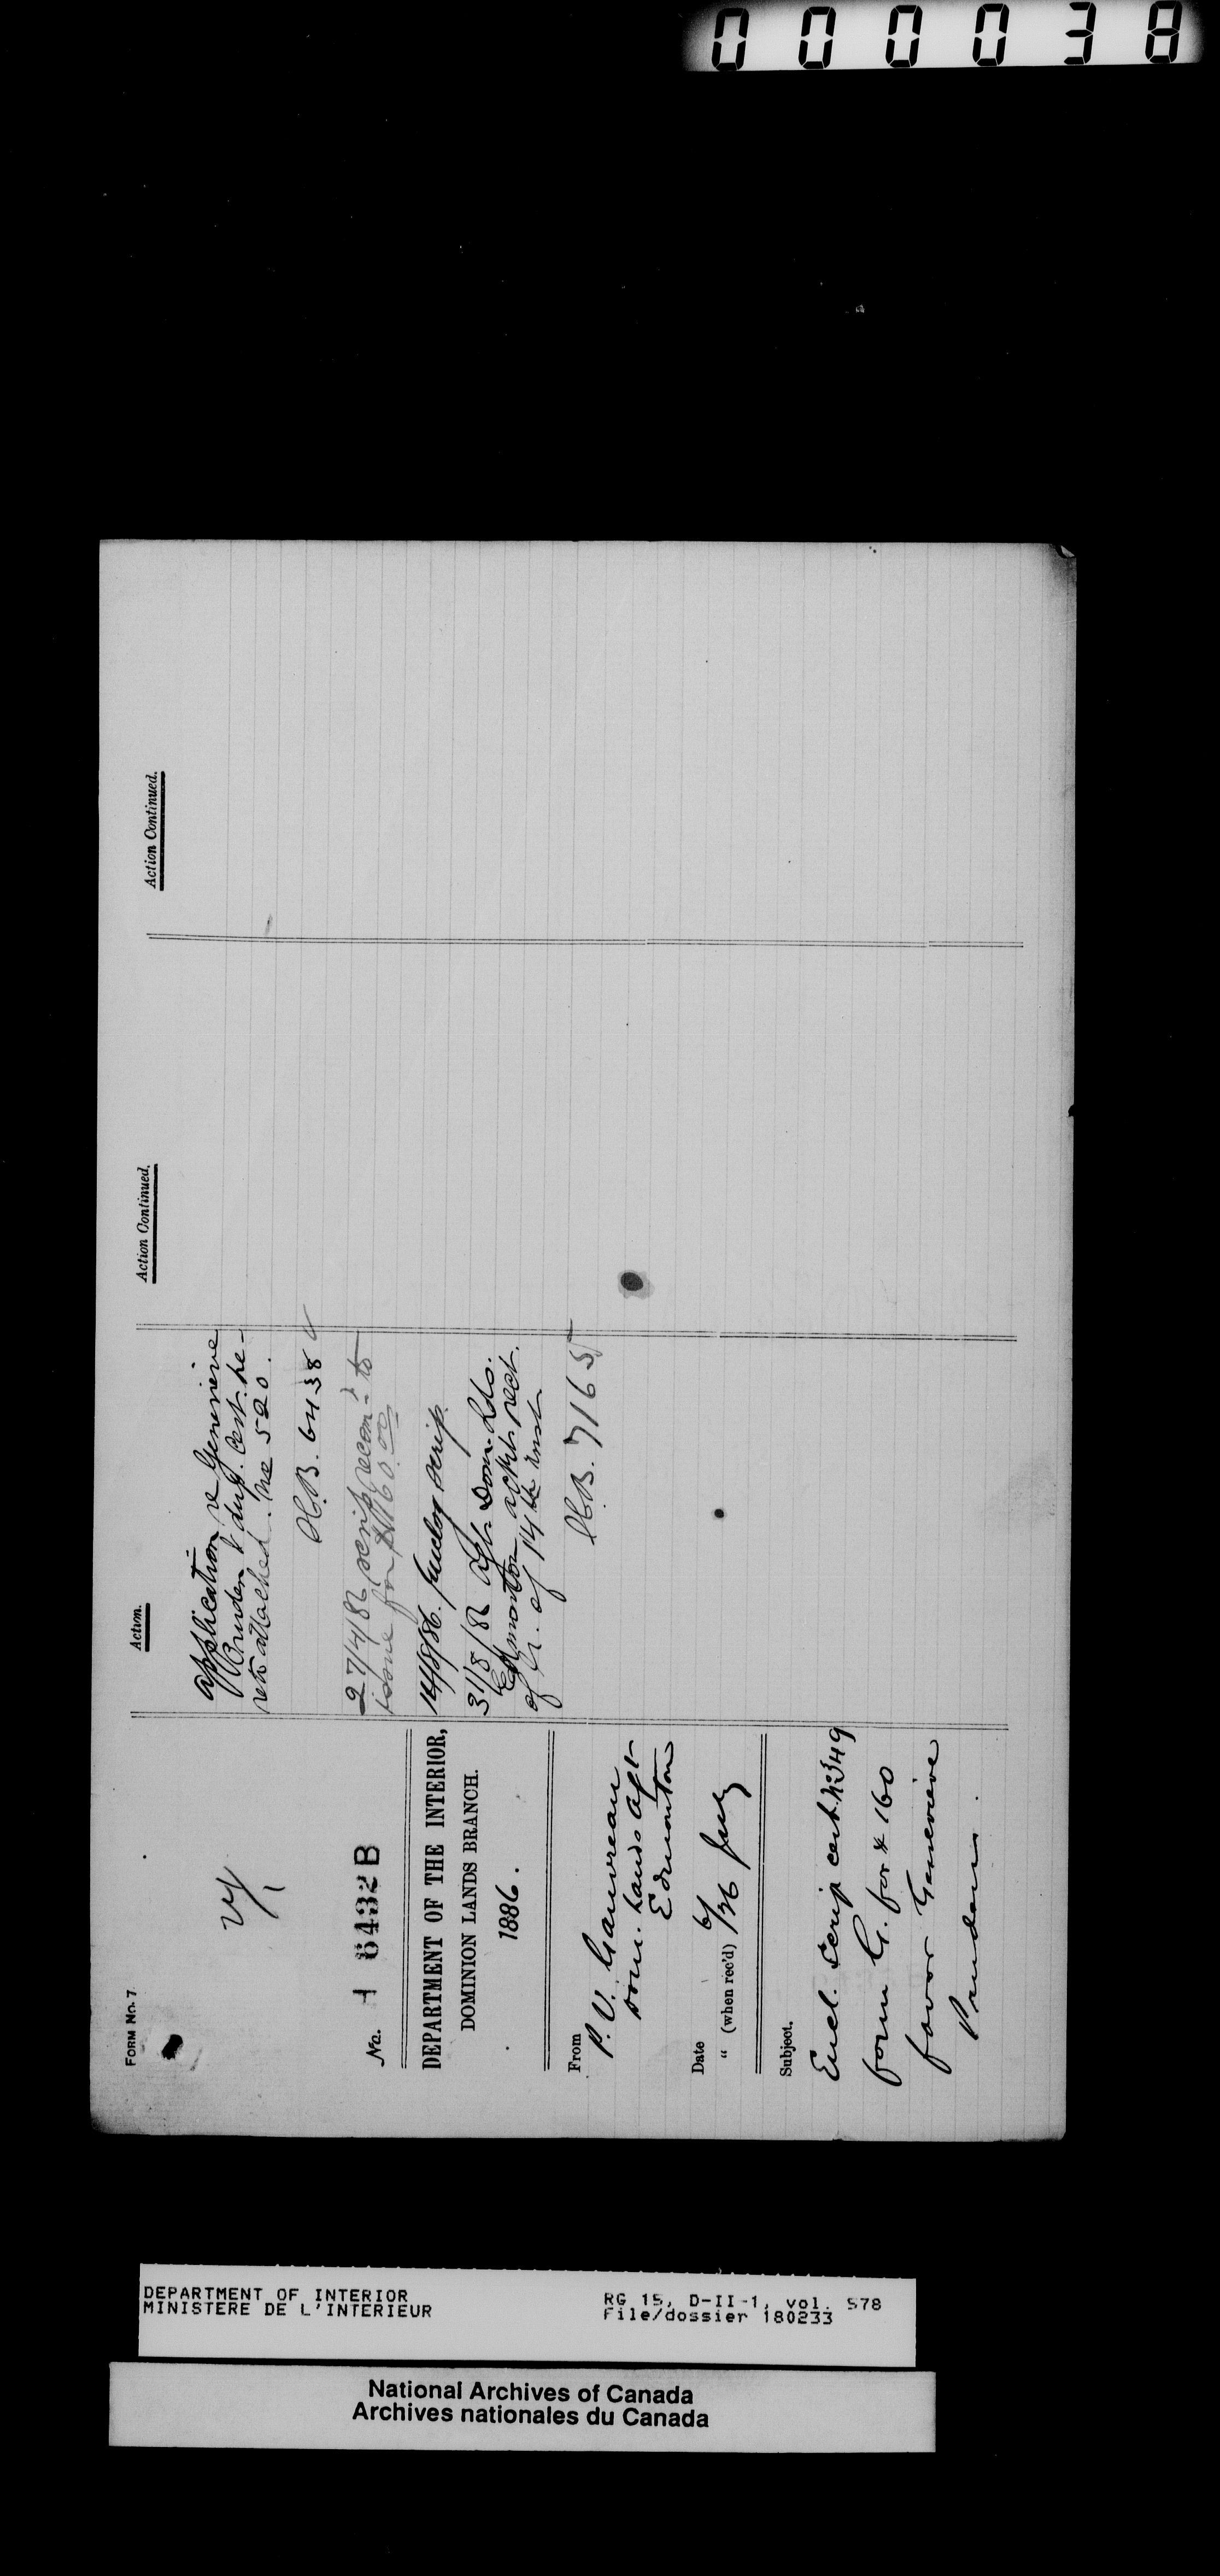 000038
FORM No. 7
No. 1 6432 B
DEPARTMENT OF THE INTERIOR,
DOMINION LANDS BRANCH.
1886.
From
P. V. Gauvreau
Dom. Lands Agt
Edmonton
Date 6/
" (when rec'd) /26 July
Subject.
Encl. Scrip cert. No 349
form G. for $160
favor Genevieve
Pruden.
Action.
Application re Genevieve
Pruden & dup. Cert. he-
reto attached. No 520.
H.B. 6438
27/4/86 scrip recom'd to
issue for $160.00
14/8/86. scrip.
31/8/86 Agt. Dom. Lds.
Edmonton ackts rect.
of lr. of 14th inst
H.B. 7165
Action Continued.
Action Continued.
DEPARTMENT OF INTERIOR
MINISTERE DE L'INTERIEUR
RG 15, D-II-1, vol. 578
File/dossier 180233
National Archives of Canada
Archives nationales du Canada